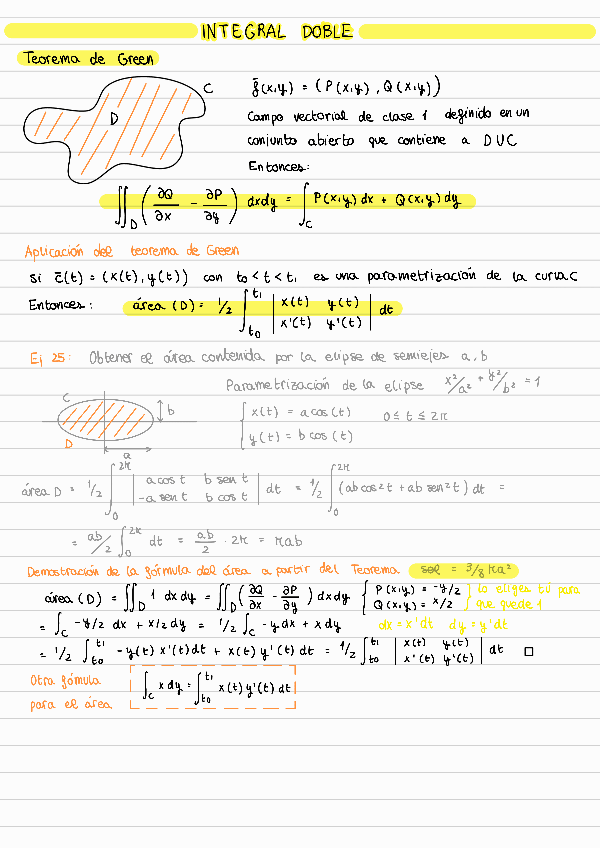 INTEGRAL DOBLE
Teorema de Green
C
D
f̄(x,y) = (P(x,y), Q(x,y))
Campo vectorial de clase 1 definido en un
conjunto abierto que contiene a D ∪ C
Entonces:
∬_D (∂Q/∂x - ∂P/∂y) dxdy = ∫_C P(x,y) dx + Q(x,y) dy
Aplicación del teorema de Green
Si c̄(t) = (x(t), y(t)) con t₀ < t < t₁ es una parametrización de la curva C
Entonces: área (D) = 1/2 ∫_t₀^t₁ | x(t) y(t) ; x'(t) y'(t) | dt
Ej 25: Obtener el área contenida por la elipse de semiejes a, b
Parametrización de la elipse x²/a² + y²/b² = 1
C
D
b
a
{ x(t) = a cos(t) 0 ≤ t ≤ 2π
y(t) = b cos(t)
área D = 1/2 ∫_0^2π | a cos t b sen t ; -a sen t b cos t | dt = 1/2 ∫_0^2π (ab cos² t + ab sen² t) dt =
= ab/2 ∫_0^2π dt = ab/2 · 2π = πab
Demostración de la fórmula del área a partir del Teorema sol = 3/8 πa²
área (D) = ∬_D 1 dxdy = ∬_D (∂Q/∂x - ∂P/∂y) dxdy { P(x,y) = -y/2 ; Q(x,y) = x/2 } lo eliges tú para que quede 1
= ∫_C -y/2 dx + x/2 dy = 1/2 ∫_C -y dx + x dy dx = x'dt dy = y'dt
= 1/2 ∫_t₀^t₁ -y(t) x'(t) dt + x(t) y'(t) dt = 1/2 ∫_t₀^t₁ | x(t) y(t) ; x'(t) y'(t) | dt □
Otra fómula
para el área
∫_C x dy = ∫_t₀^t₁ x(t) y'(t) dt